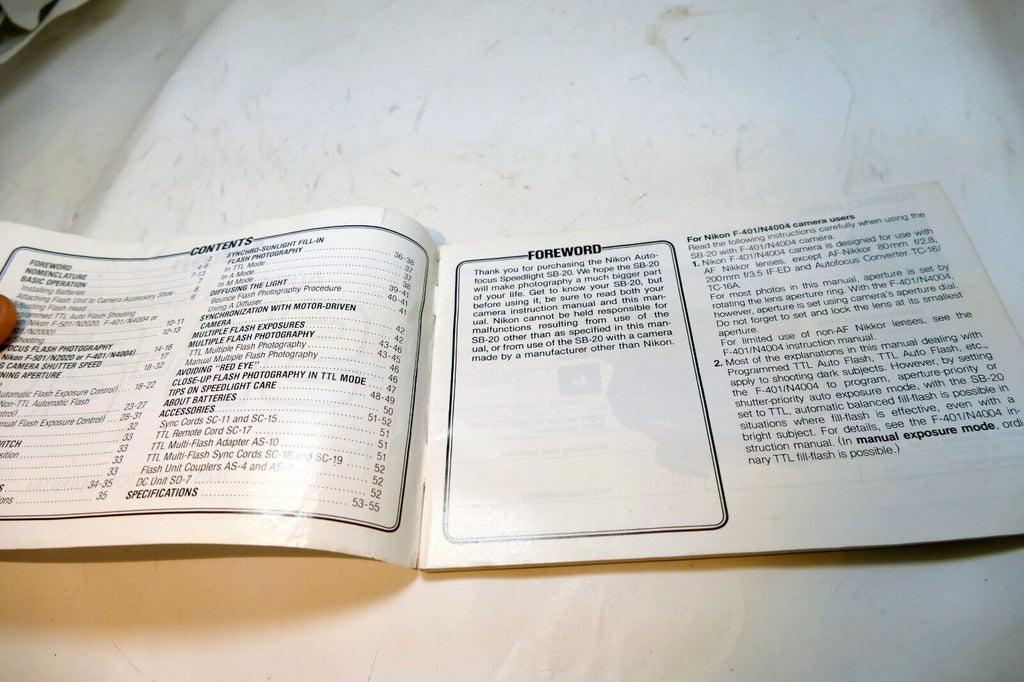 CONTENTS
FOREWORD
NOMENCLATURE
BASIC OPERATION
Installing Batteries
Attaching Flash Unit to Camera Accessory Shoe
Flash Head
TTL Auto Flash Shooting
Nikon F-501/N2020, F-401/N4004 or
/N2000)
Shooting
FOCUS FLASH PHOTOGRAPHY
Nikon F-501/N2020 or F-401/N4004)
CAMERA SHUTTER SPEED
APERTURE
Automatic Flash Exposure Control)
Non-TTL Automatic Flash
Flash Exposure Control)
3
4-6
7-13
7
8
9
10-11
12-13
14-16
17
18-32
18-22
23-27
28-31
32
33
33
33
34-35
35
SYNCHRO-SUNLIGHT FILL-IN
FLASH PHOTOGRAPHY 36-38
In TTL Mode 37
In A Mode 37
In M Mode 38
DIFFUSING THE LIGHT 39-41
Bounce Flash Photography Procedure 40-41
Using A Diffuser 41
SYNCHRONIZATION WITH MOTOR-DRIVEN
CAMERA 42
MULTIPLE FLASH EXPOSURES 42
MULTIPLE FLASH PHOTOGRAPHY 43-46
TTL Multiple Flash Photography 43-45
Manual Multiple Flash Photography 46
AVOIDING "RED EYE" 46
CLOSE-UP FLASH PHOTOGRAPHY IN TTL MODE 47
TIPS ON SPEEDLIGHT CARE 48-49
ABOUT BATTERIES 50
ACCESSORIES 51-52
Sync Cords SC-11 and SC-15 51
TTL Remote Cord SC-17 51
TTL Multi-Flash Adapter AS-10 51
TTL Multi-Flash Sync Cords SC-18 and SC-19 52
Flash Unit Couplers AS-4 and AS-7 52
DC Unit SD-7 52
SPECIFICATIONS 53-55
FOREWORD
Thank you for purchasing the Nikon Auto-
focus Speedlight SB-20. We hope the SB-20
will make photography a much bigger part
of your life. Get to know your SB-20, but
before using it, be sure to read both your
camera instruction manual and this man-
ual. Nikon cannot be held responsible for
malfunctions resulting from use of the
SB-20 other than as specified in this man-
ual, or from use of the SB-20 with a camera
made by a manufacturer other than Nikon.
For Nikon F-401/N4004 camera users
Read the following instructions carefully when using the
SB-20 with F-401/N4004 camera.
1. Nikon F-401/N4004 camera is designed for use with
AF Nikkor lenses, except AF-Nikkor 80mm f/2.8,
200mm f/3.5 IF-ED and Autofocus Converter TC-16/
TC-16A.
For most photos in this manual, aperture is set by
rotating the lens aperture ring. With the F-401/N4004,
however, aperture is set using camera's aperture dial.
Do not forget to set and lock the lens at its smallest
aperture.
For limited use of non-AF Nikkor lenses, see the
F-401/N4004 instruction manual.
2. Most of the explanations in this manual dealing with
Programmed TTL Auto Flash, TTL Auto Flash, etc.,
apply to shooting dark subjects. However, by setting
the F-401/N4004 to program, aperture-priority or
shutter-priority auto exposure mode, with the SB-20
set to TTL, automatic balanced fill-flash is possible in
situations where fill-flash is effective, even with a
bright subject. For details, see the F-401/N4004 in-
struction manual. (In manual exposure mode, ordi
nary TTL fill-flash is possible.)